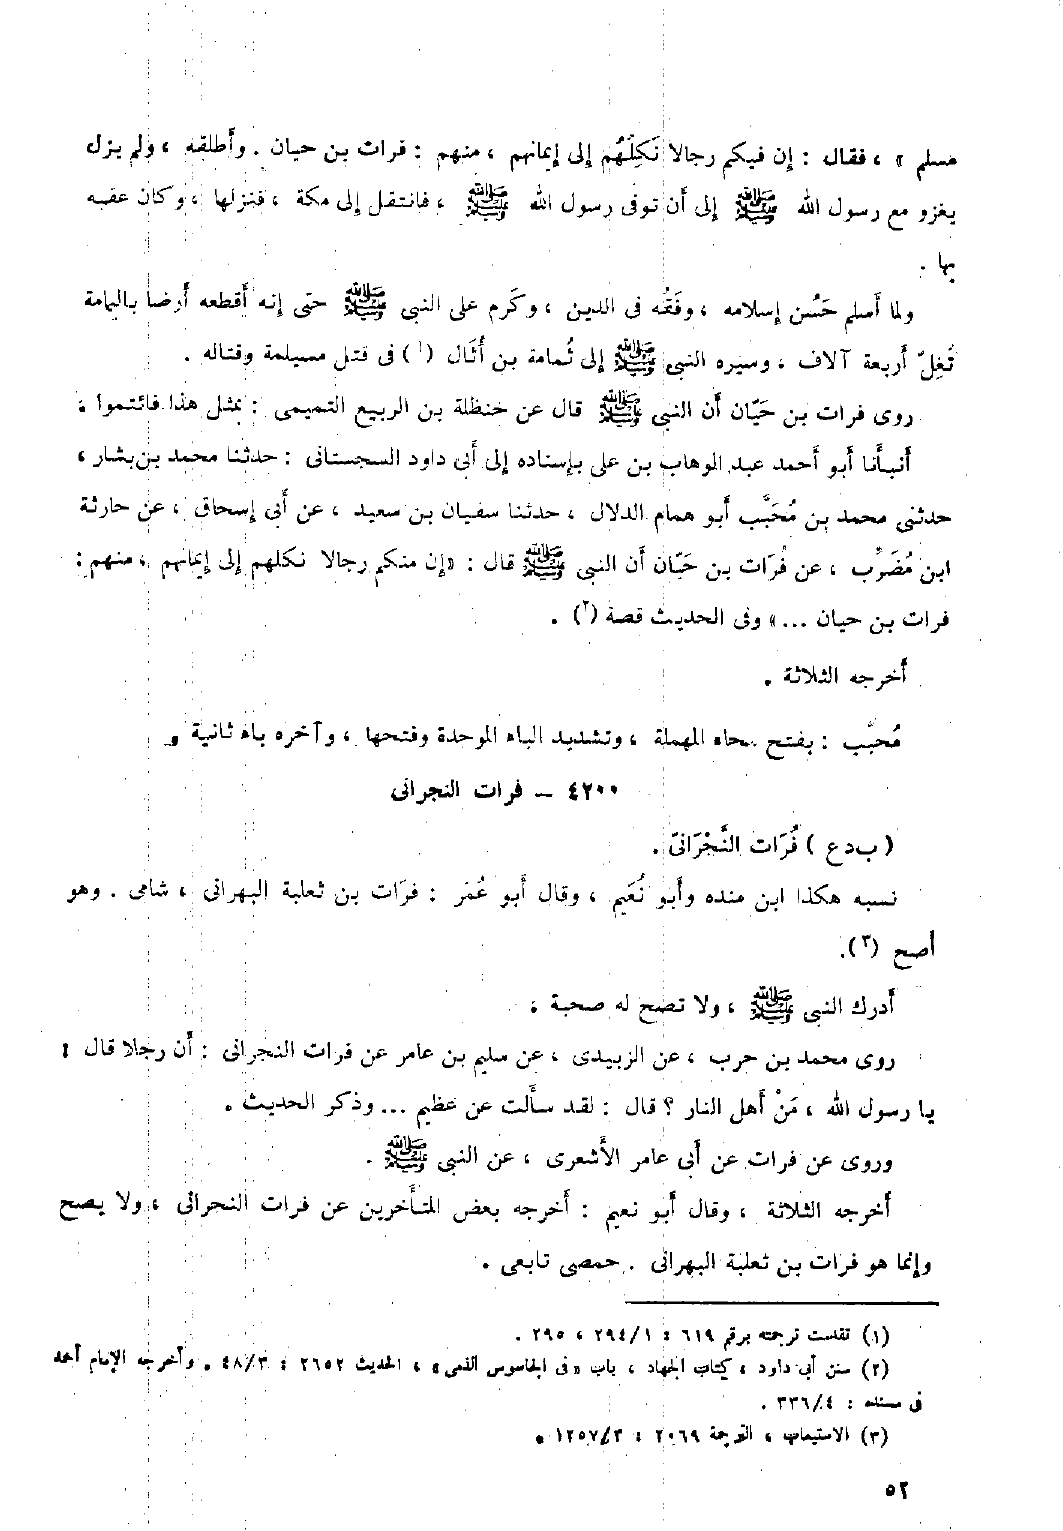 مسلم » ، فقال : إن فيكم رجالا نَكِلُهُم إلى إيمانهم ، منهم : فرات بن حيان . وأطلقه ، ولم يزل
يغزو مع رسول الله ﷺ إلى أن توفى رسول الله ﷺ ، فانتقل إلى مكة ، فنزلها ، وكان عقبه
بها .
ولما أسلم حَسُن إسلامه ، وفَقُه فى الدين ، وكَرم على النبى ﷺ حتى إنه أقطعه أرضا باليمامة
تُغِلّ أربعة آلاف ، وسيره النبى ﷺ إلى ثُمامة بن أُثَال (١) فى قتل مسيلمة وقتاله .
روى فرات بن حَيّان أن النبى ﷺ قال عن حنظلة بن الربيع التميمى : بمثل هذا فائتموا :
أنبأنا أبو أحمد عبد الوهاب بن على بإسناده إلى أبى داود السجستانى : حدثنا محمد بن بشار ،
حدثنى محمد بن مُحَبَّب أبو همام الدلال ، حدثنا سفيان بن سعيد ، عن أبى إسحاق ، عن حارثة
ابن مُضَرِّب ، عن فُرَات بن حَيّان أن النبى ﷺ قال : «إن منكم رجالا نكلهم إلى إيمانهم ، منهم :
فرات بن حيان ...» وفى الحديث قصة (٢) .
أخرجه الثلاثة .
مُحَبَّب : بفتح حاء المهملة ، وتشديد الباء الموحدة وفتحها ، وآخره باء ثانية .
٤٢٠٠ – فرات النجرانى
( ب د ع ) فُرَات النَّجْرَانىّ .
نسبه هكذا ابن منده وأبو نُعَيم ، وقال أبو عُمَر : فرَات بن ثعلبة البهرانى ، شامى . وهو
أصح (٣).
أدرك النبى ﷺ ، ولا تصح له صحبة :
روى محمد بن حرب ، عن الزبيدى ، عن سليم بن عامر عن فرات النجرانى : أن رجلا قال :
يا رسول الله ، مَنْ أهل النار ؟ قال : لقد سألت عن عظيم ... وذكر الحديث .
وروى عن فرات عن أبى عامر الأشعرى ، عن النبى ﷺ .
أخرجه الثلاثة ، وقال أبو نعيم : أخرجه بعض المتأخرين عن فرات النجرانى ، ولا يصح
وإنما هو فرات بن ثعلبة البهرانى . حمصى تابعى .
(١) تقدمت ترجمته برقم ٦١٩ : ٢٩٤/١ ، ٢٩٥ .
(٢) سنن أبى داود ، كتاب الجهاد ، باب «فى الجاسوس الذمى» ، الحديث ٢٦٥٢ : ٤٨/٣ . وأخرجه الإمام أحمد
فى مسنده : ٣٣٦/٤ .
(٣) الاستيعاب ، الترجمة ٢٠٦٩ : ١٢٥٧/٣ .
٥٢